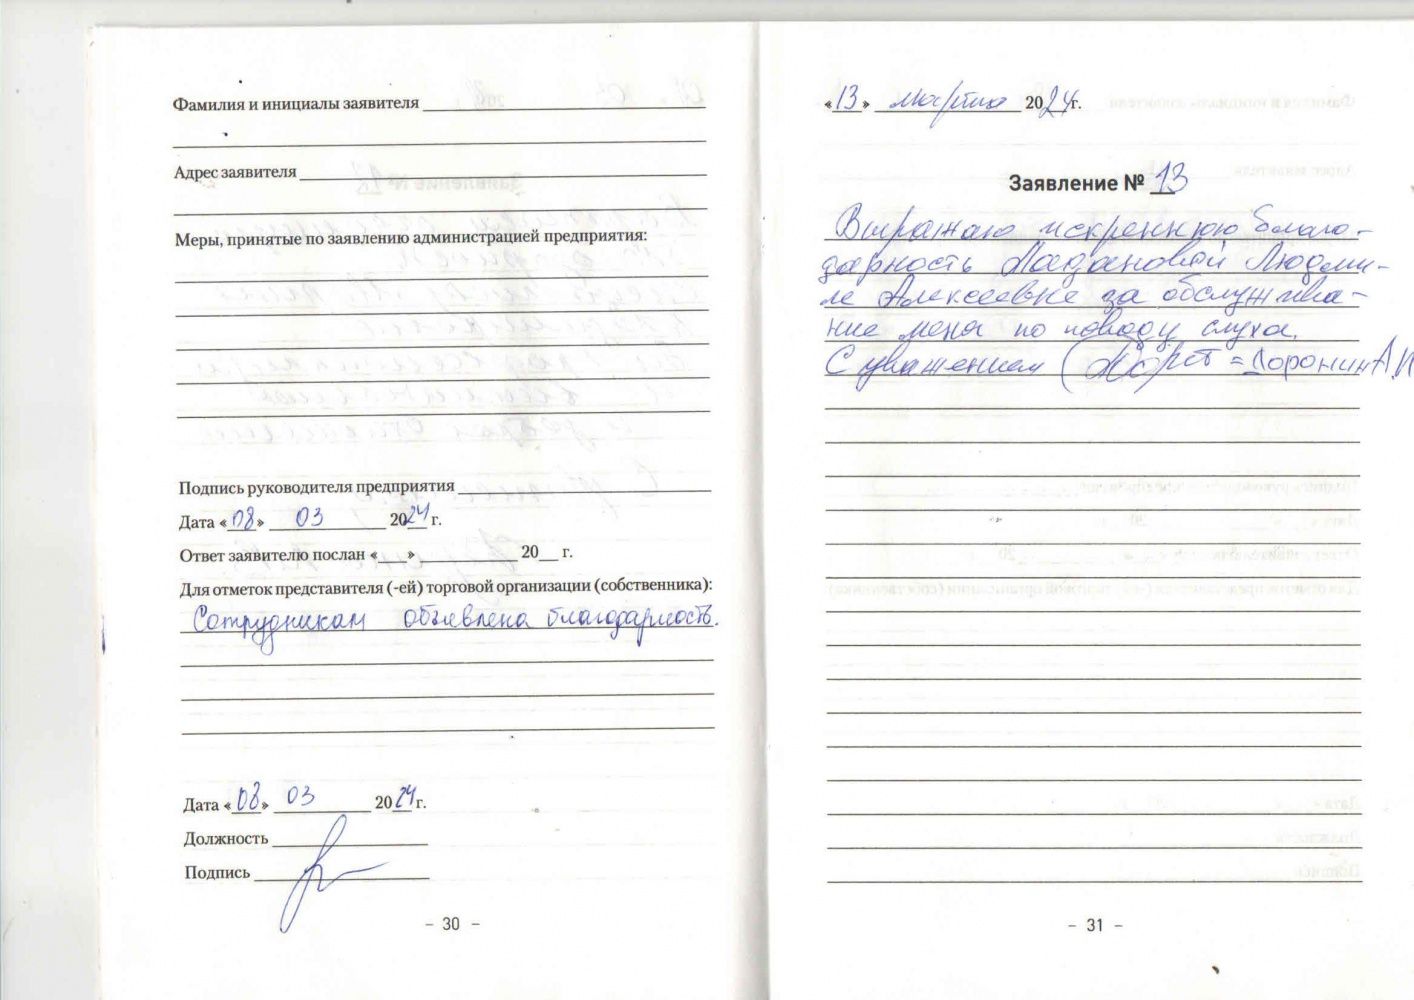 Фамилия и инициалы заявителя
Адрес заявителя
Меры, принятые по заявлению администрацией предприятия:
Подпись руководителя предприятия
Дата «08» 03 2024 г.
Ответ заявителю послан « » 20 г.
Для отметок представителя (-ей) торговой организации (собственника):
Сотрудникам объявлена благодарность.
Дата «08» 03 2024 г.
Должность
Подпись
– 30 –
«13» марта 2024 г.
Заявление № 13
Выражаю искреннюю благо-
дарность Людми-
ле Алексеевне за обслужива-
ние меня по поводу слуха.
С уважением
– 31 –